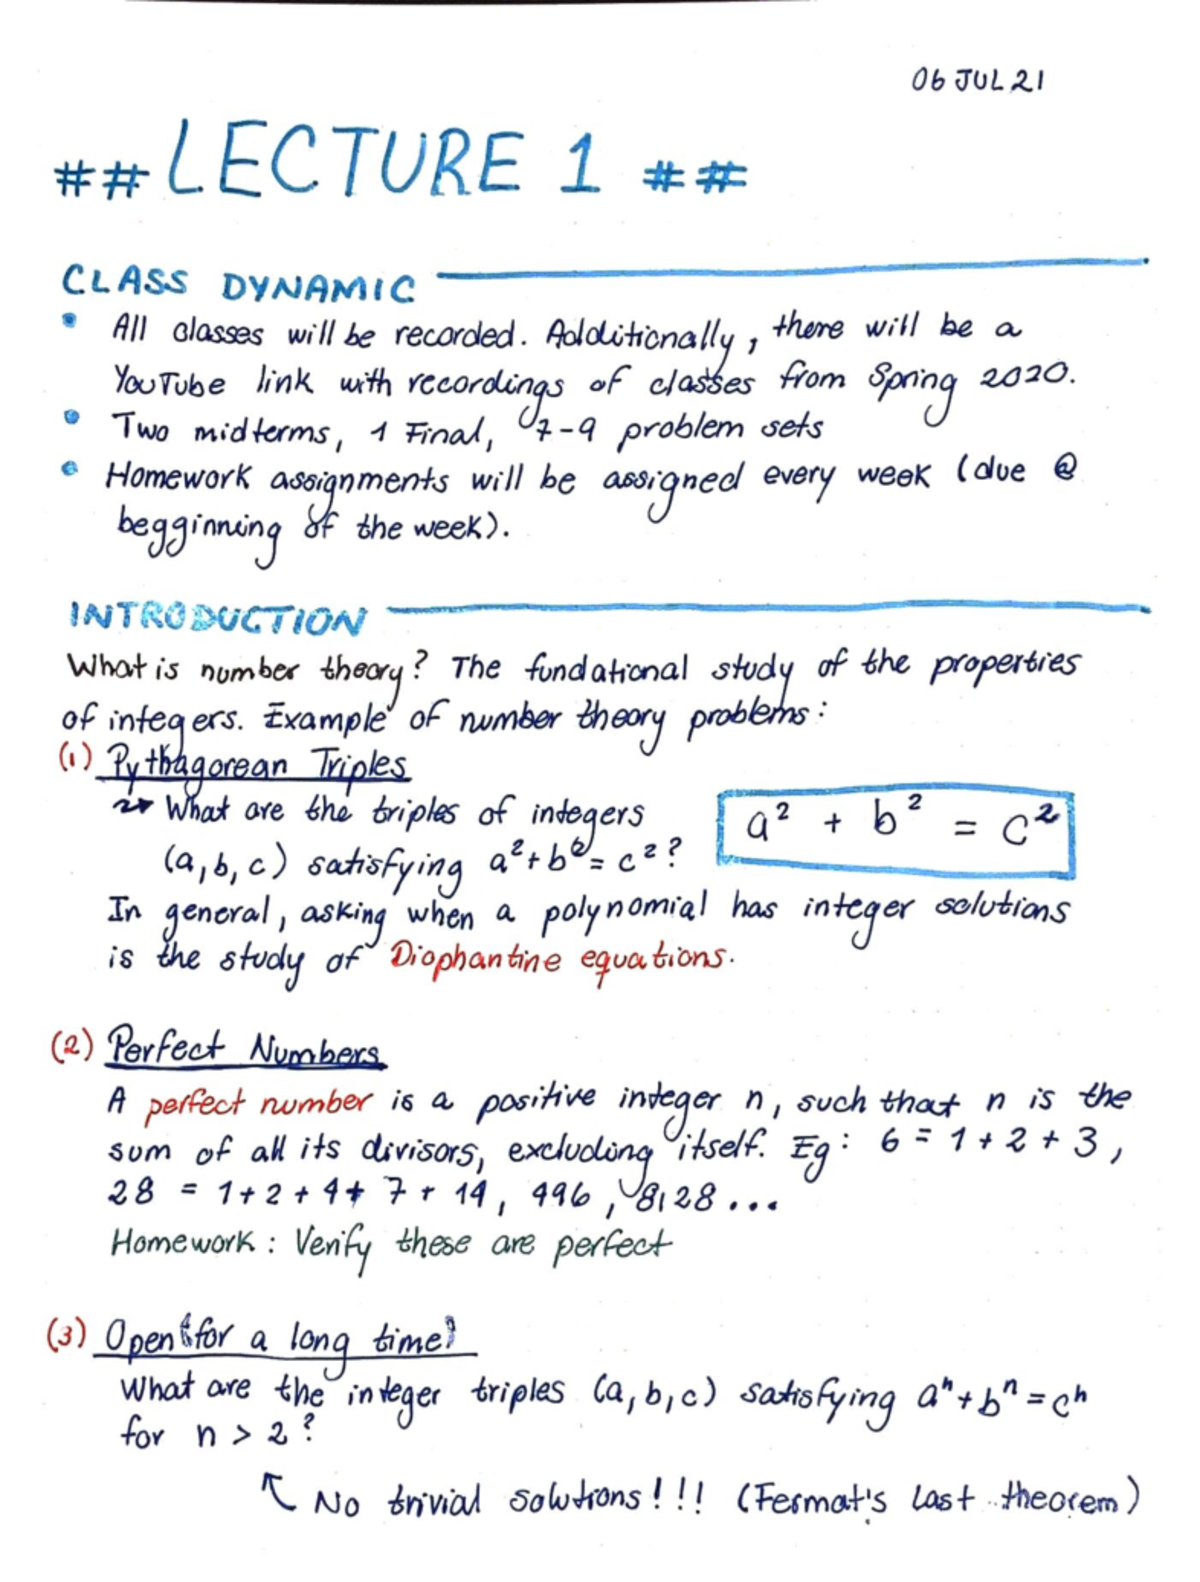 06 JUL 21
## LECTURE 1 ##
CLASS DYNAMIC
• All classes will be recorded. Additionally, there will be a
YouTube link with recordings of classes from Spring 2020.
• Two midterms, 1 Final, 7-9 problem sets
• Homework assignments will be assigned every week (due @
begginning of the week).
INTRODUCTION
What is number theory? The fundational study of the properties
of integers. Example of number theory problems:
(1) Pythagorean Triples
↝ What are the triples of integers
(a, b, c) satisfying a² + b² = c²?
a² + b² = c²
In general, asking when a polynomial has integer solutions
is the study of Diophantine equations.
(2) Perfect Numbers
A perfect number is a positive integer n, such that n is the
sum of all its divisors, excluding itself. Eg: 6 = 1 + 2 + 3,
28 = 1 + 2 + 4 + 7 + 14, 496, 8128...
Homework: Verify these are perfect
(3) Open (for a long time)
What are the integer triples (a, b, c) satisfying aⁿ + bⁿ = cⁿ
for n > 2?
↖ No trivial solutions!!! (Fermat's last theorem)